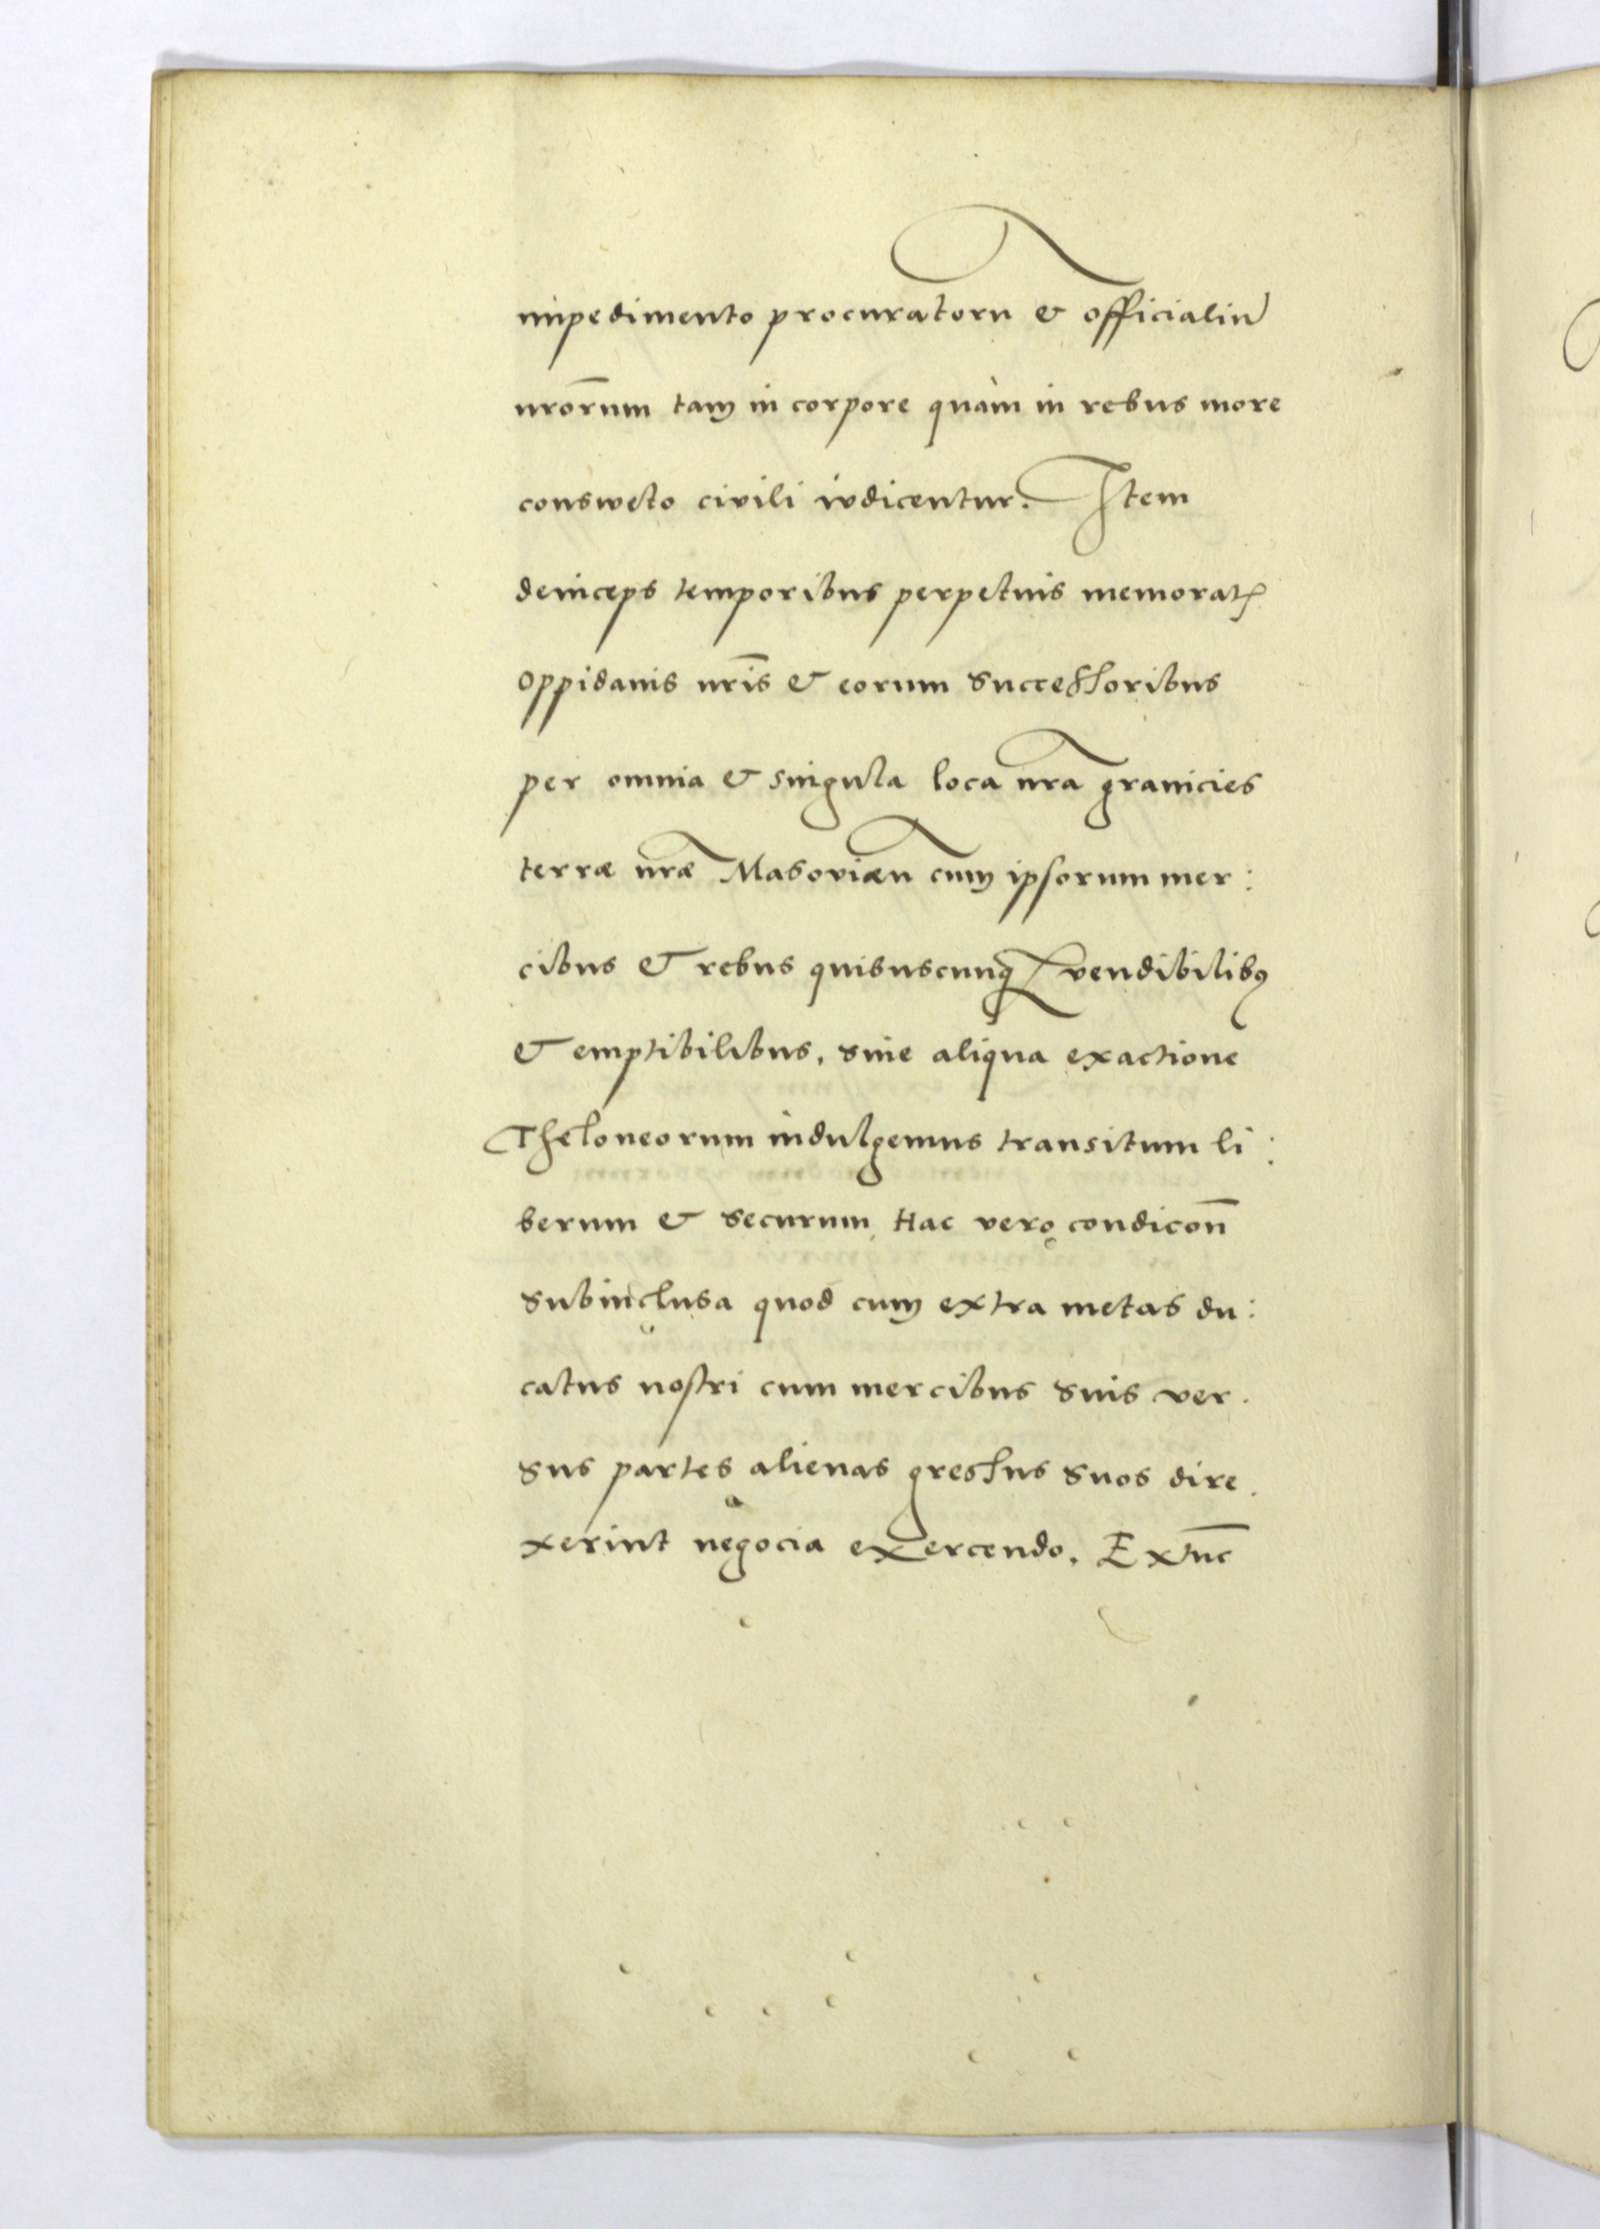 impedimento procuratorū & officialiū
nr̄orum tam in corpore quàm in rebus more
consweto civili iudicentur. Item
deinceps temporibus perpetuis memoratꝭ
oppidanis nr̄is & eorum successoribus
per omnia & singula loca nr̄a granicies
terræ nr̄æ Masoviæn cum ipsorum mer:
cibus & rebus quibuscunqꝫ vendibilibꝰ
& emptibilibus, sine aliqua exactione
Theloneorum indulgemus transitum li:
berum & securum, Hac vero condicōn
subinclusa quod cum extra metas du:
catus nostri cum mercibus suis ver.
sus partes alienas gressus suos dire.
xerint negocia exercendo. Extūc